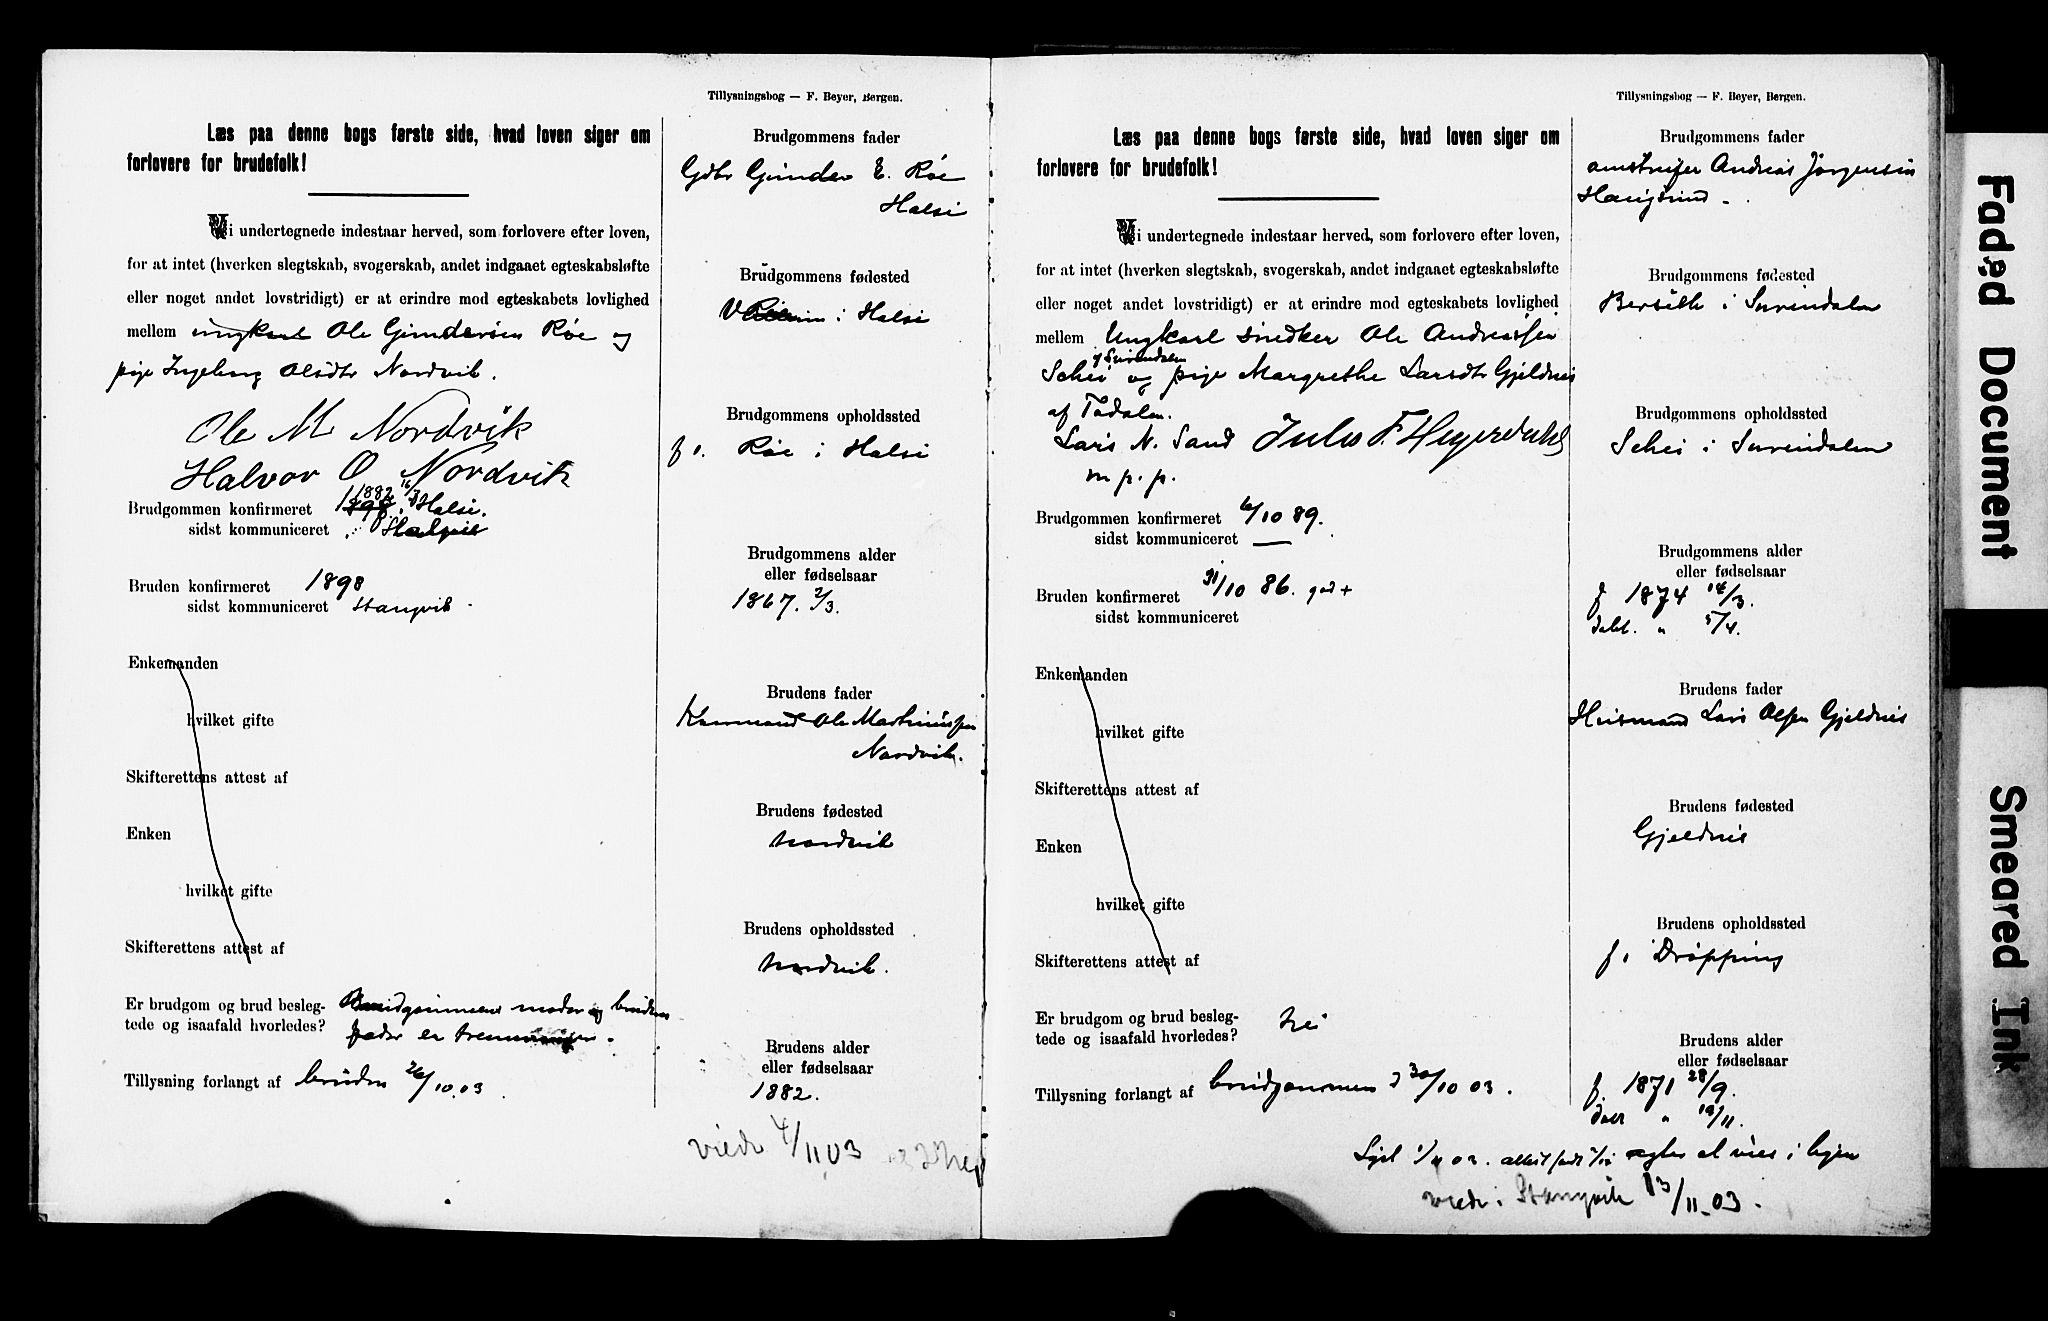 Tillysningsbog — F. Beyer, Bergen.
Læs paa denne bogs første side, hvad loven siger om
forlovere for brudefolk!
Vi undertegnede indestaar herved, som forlovere efter loven,
for at intet (hverken slegtskab, svogerskab, andet indgaaet egteskabsløfte
eller noget andet lovstridigt) er at erindre mod egteskabets lovlighed
mellem ungkarl Ole Gundersen Røe og
pige Ingeborg Olsdtr Nordvik.
Ole M Nordvik
Halvor O Nordvik
1882 16/7
Brudgommen konfirmeret i Halse.
sidst kommuniceret
Bruden konfirmeret 1898
sidst kommuniceret Stangvik
Enkemanden
hvilket gifte
Skifterettens attest af
Enken
hvilket gifte
Skifterettens attest af
Er brudgom og brud besleg- Brudgommens moder og brudens
tede og isaafald hvorledes? fader er tremenninger.
Tillysning forlangt af bruden 26/10.03
Brudgommens fader
Gdbr Gunder E. Røe
Halse
Brudgommens fødested
i Halse
Brudgommens opholdssted
f. Røe i Halse
Brudgommens alder
eller fødselsaar
1867. 2/3.
Brudens fader
Ole Martinussen
Nordvik.
Brudens fødested
Nordvik
Brudens opholdssted
Nordvik.
Brudens alder
eller fødselsaar
1882.
viede 4/11 03
Tillysningsbog — F. Beyer, Bergen.
Læs paa denne bogs første side, hvad loven siger om
forlovere for brudefolk!
Vi undertegnede indestaar herved, som forlovere efter loven,
for at intet (hverken slegtskab, svogerskab, andet indgaaet egteskabsløfte
eller noget andet lovstridigt) er at erindre mod egteskabets lovlighed
mellem Ungkarl snedker Ole Andreassen
af Surendalen
Schei og pige Margrethe Larsdtr Gjeldnes
af Todalen.
Lars N. Sand Julus F. Heyerdahl
m. p. p.
Brudgommen konfirmeret 6/10 89.
sidst kommuniceret —
Bruden konfirmeret 31/10 86. god +
sidst kommuniceret
Enkemanden
hvilket gifte
Skifterettens attest af
Enken
hvilket gifte
Skifterettens attest af
Er brudgom og brud besleg- Nei
tede og isaafald hvorledes?
Tillysning forlangt af brudgommen d 30/10 03.
Brudgommens fader
Andreas Jørgensen
Haugsund.
Brudgommens fødested
i Surendalen
Brudgommens opholdssted
Schei i Surendalen
Brudgommens alder
eller fødselsaar
f 1874 14/3.
døbt. " 5/4.
Brudens fader
Husmand Lars Olsen Gjeldnes
Brudens fødested
Gjeldnes
Brudens opholdssted
f. i Drøpping
Brudens alder
eller fødselsaar
f. 1871 28/9.
døbt " 19/11.
Lyst 1/11 03. agter at vies i byen
viede i Stangvik 13/11.03.
Faded Document
Smeared Ink